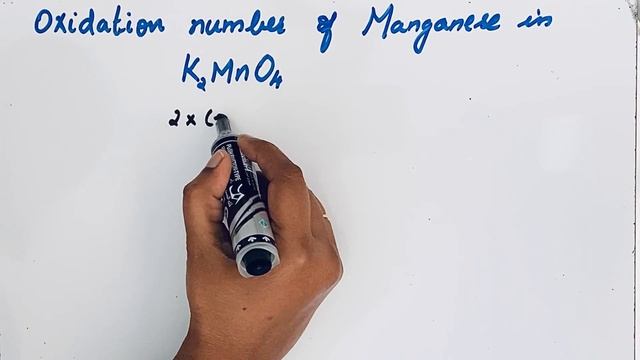 Oxidation number of Manganese in
K₂MnO₄
2 × (